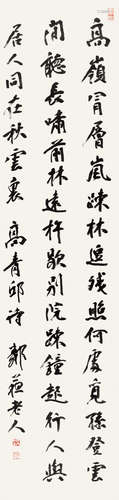 高嶺冒層嵐疎林逗残照何處覓孫登雲
間聽長嘯前林遠杵歇別院疎鐘起行人與
居人同在秋雲裏 高青邱詩 鄭蘓老人